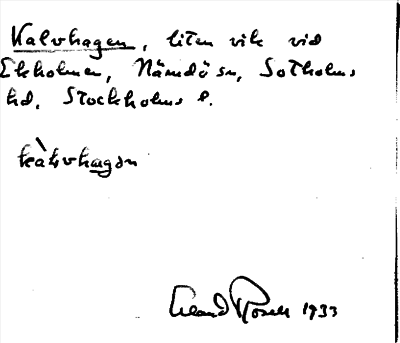 Kalvhagen, liten vik vid
Ekholmen, Nämdö sn, Sotholms
hd, Stockholms l.
kàlvhagan
Erland Rosell 1933